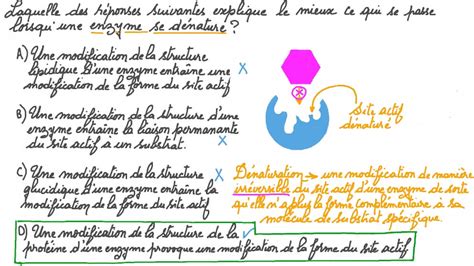 Laquelle des réponses suivantes explique le mieux ce qui se passe
lorsqu'une enzyme se dénature ?
A) Une modification de la structure
lipidique d'une enzyme entraîne une
modification de la forme du site actif
B) Une modification de la structure d'une
enzyme entraîne la liaison permanante
du site actif à un substrat.
C) Une modification de la structure
glucidique d'une enzyme entraîne la
modification de la forme du site actif
D) Une modification de la structure de la
protéine d'une enzyme provoque une modification de la forme du site actif
Site actif
dénaturé
Dénaturation → une modification de manière
irréversible du site actif d'une enzyme de sorte
qu'elle n'a plus la forme complémentaire à sa
molécule de substrat spécifique.